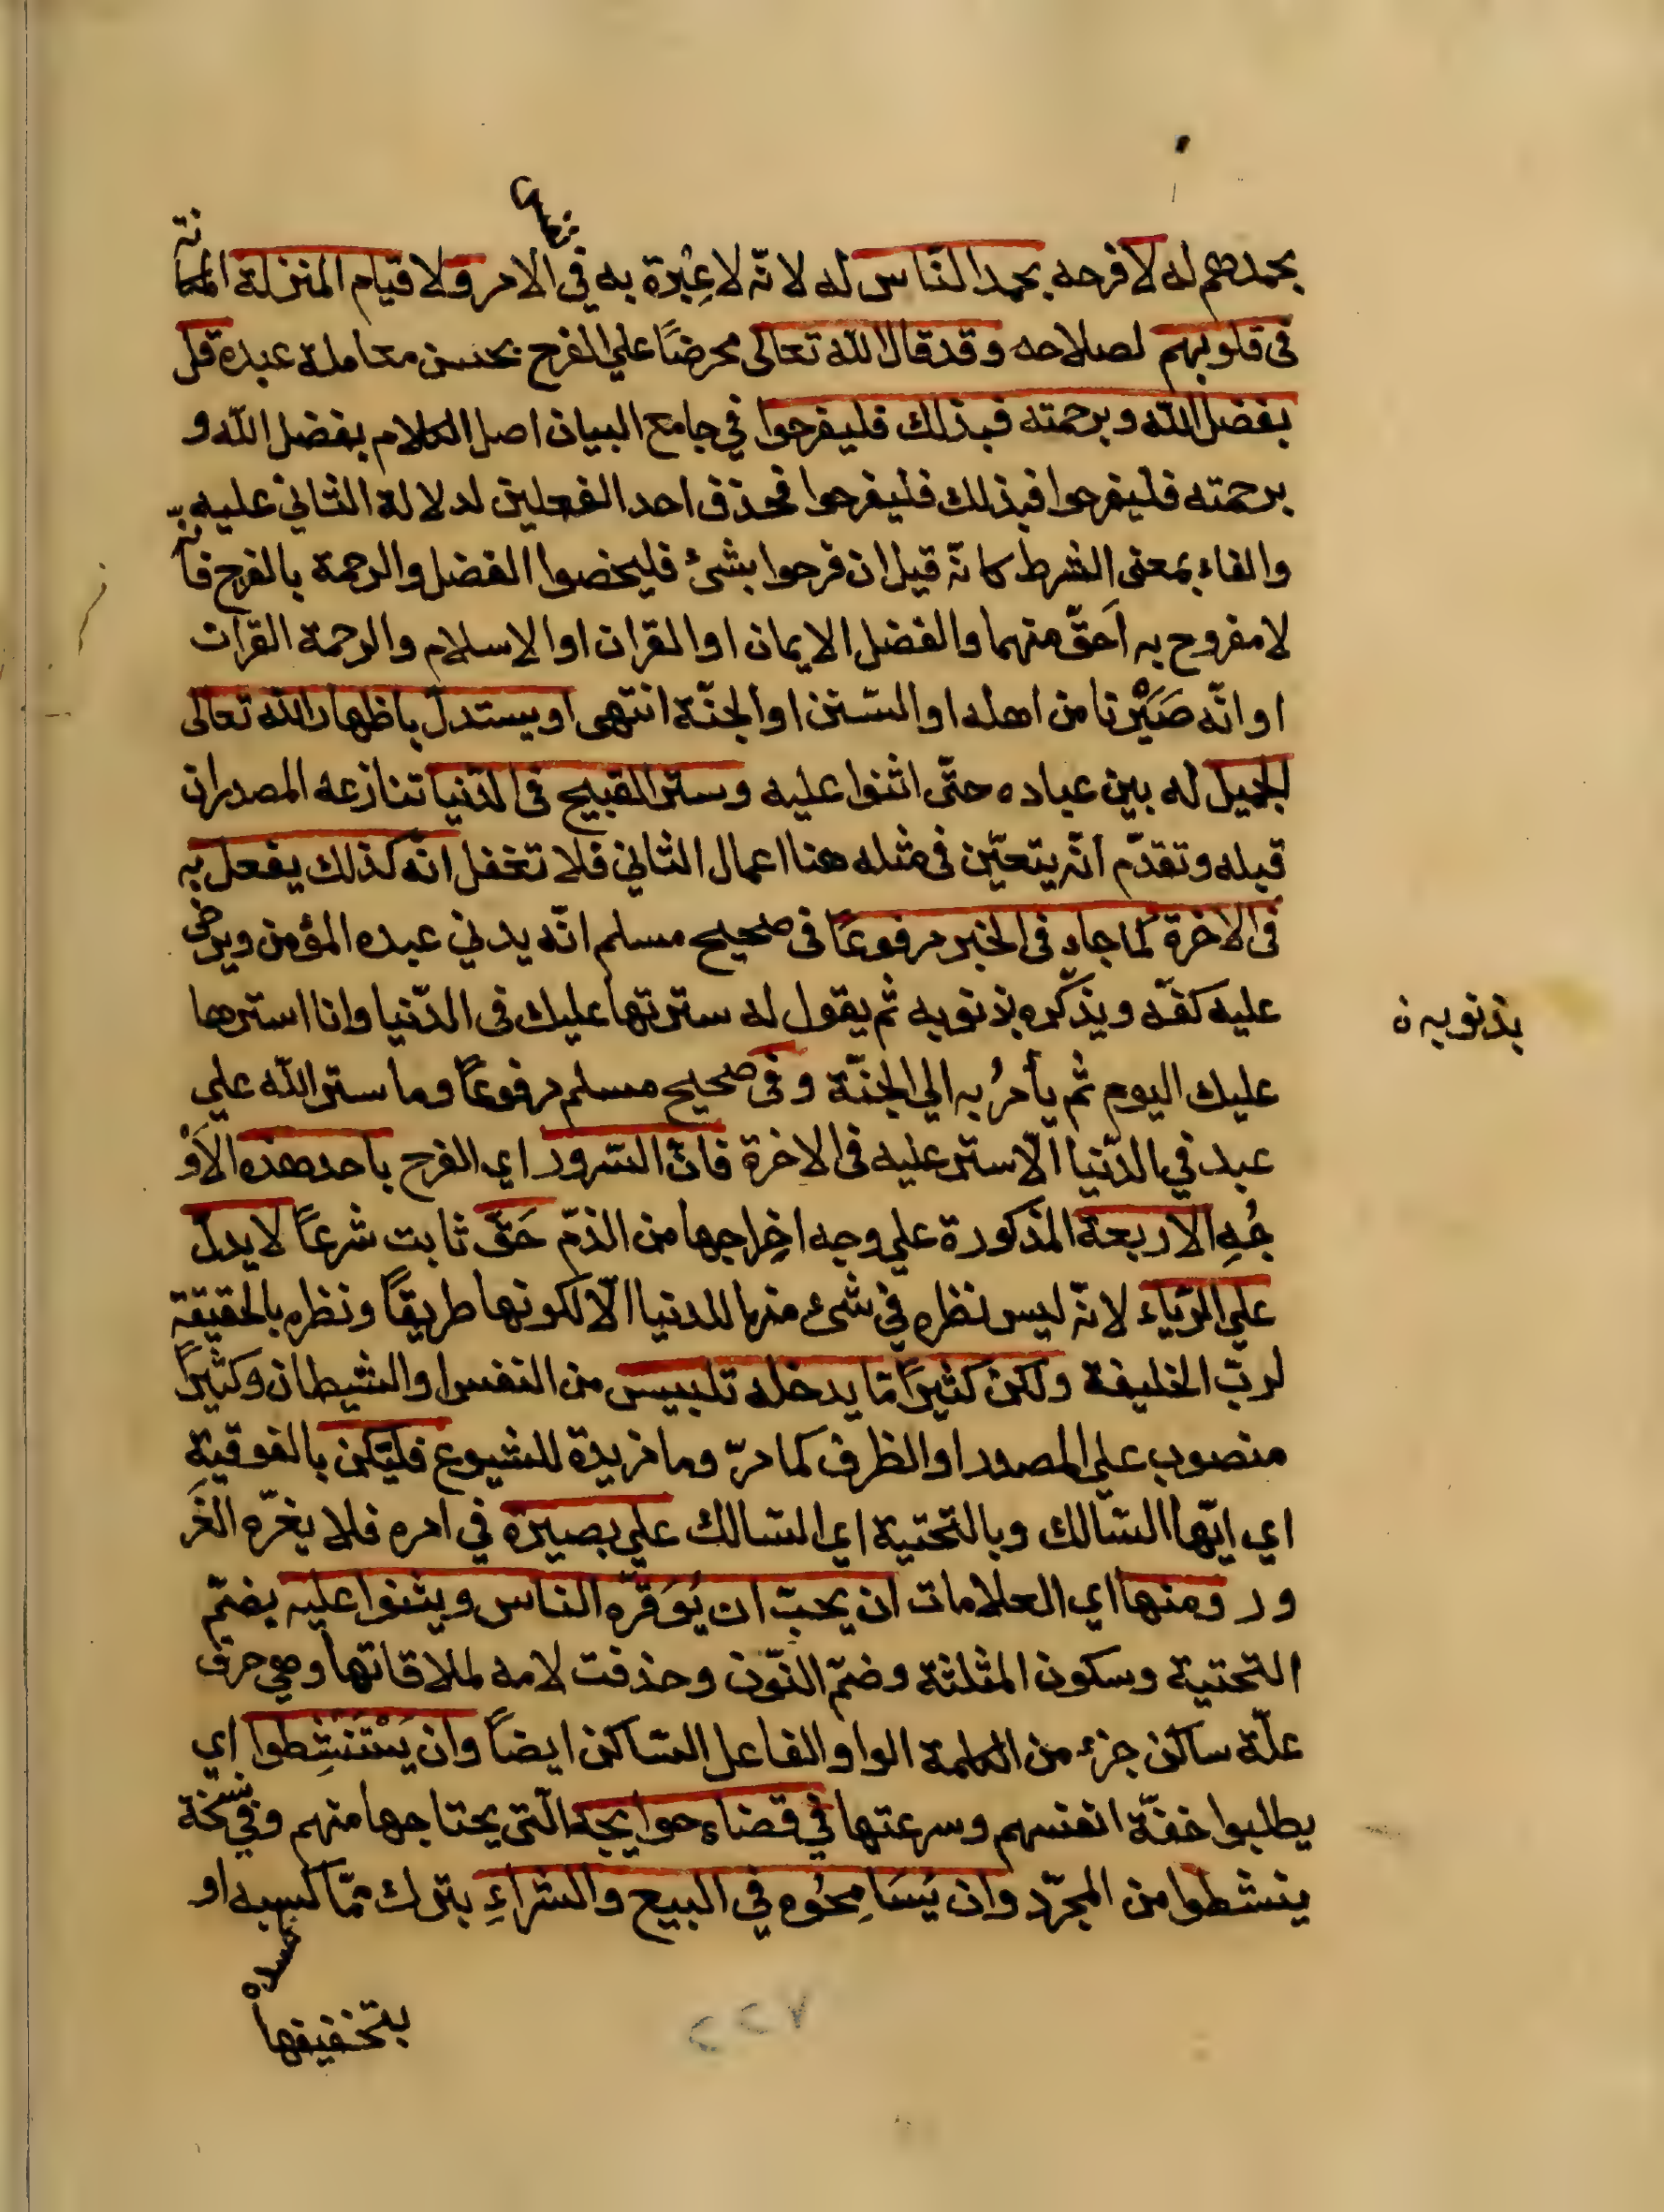 بحمدهم له لا فرحه بحمد النّاس له لانّه لا عِبْرة به في الامر ولا قيام المنزلة المكانة
فى قلوبهم لصلاحه وقد قال الله تعالى محرضًا علي الفرح بحسن معاملة عبده قل
بفضل الله وبرحمته فبذلك فليفرحوا في جامع البيان اصل الكلام بفضل الله و
برحمته فليفرحوا فبذلك فليفرحوا فحذف احد الفعلين لدلالة الثاني عليه
والفاء بمعنى الشرط كانّه قيل ان فرحوا بشئ فليخصوا الفضل والرحمة بالفرح فانّه
لا مفروح به اَحَقّ منهما والفضل الايمان او القران او الاسلام والرحمة القران
او انّه صَيَّرنا من اهله او السّنن او الجنّة انتهى او يستدلّ باظهار الله تعالى
الجميل له بين عباده حتّى اثنوا عليه وستر القبيح فى الدّنيا تنازعه المصدران
قبله وتقدّم انّه يتعيّن فى مثله هنا اعمال الثاني فلا تغفل انّه كذلك يفعل به
فى الاخرة كما جاء فى الخبر مرفوعًا فى صحيح مسلم انّه يدني عبده المؤمن ويرخى
عليه كنفه ويذكّره بذنوبه ثم يقول له سترتها عليك فى الدّنيا وانا استرها
بذنوبه ن
عليك اليوم ثم يأمرُ به الي الجنّة وفى صحيح مسلم مرفوعًا وما ستر الله علي
عبد في الدّنيا الّا ستر عليه فى الاخرة فانّ السّرور اي الفرح باحد هذه الاَوْ
جُهِ الاربعة المذكورة علي وجه اخراجها من الذمّ حَقّ ثابت شرعًا لا يدلّ
علي الرّياء لانّه ليس نظره في شئ منها للدنيا الّا لكونها طريقًا ونظره بالحقيقة
لربّ الخليفة ولكن كثيرًا مّا يدخله تلبيس من النفس او الشيطان وكثيرًا
منصوب علي المصدر او الظرف كما مرّ وما مزيدة للشيوع فلتكن بالفوقية
اي ايّها السّالك وبالتحتية اي السّالك علي بصيرة في امره فلا يغرّه الغَر
ور ومنها اي العلامات ان يحبّ ان يُوَقّره الناس ويثنوا عليه بضمّ
التحتية وسكون المثلثة وضمّ النّون وحذفت لامه لملاقاتها وهي حرف
علّة ساكن جزء من الكلمة الواو الفاعل السّاكن ايضًا وان يَسْتَنْشِطوا اي
يطلبوا خفّة انفسهم وسرعتها في قضاء حوايجه الّتى يحتاجها منهم وفي نسخة
ينشطوا من المجرّد وان يُسَامِحُوه في البيع والشراءِ بترك ممّا كسبه او
بتخفيفها
٢٢٧